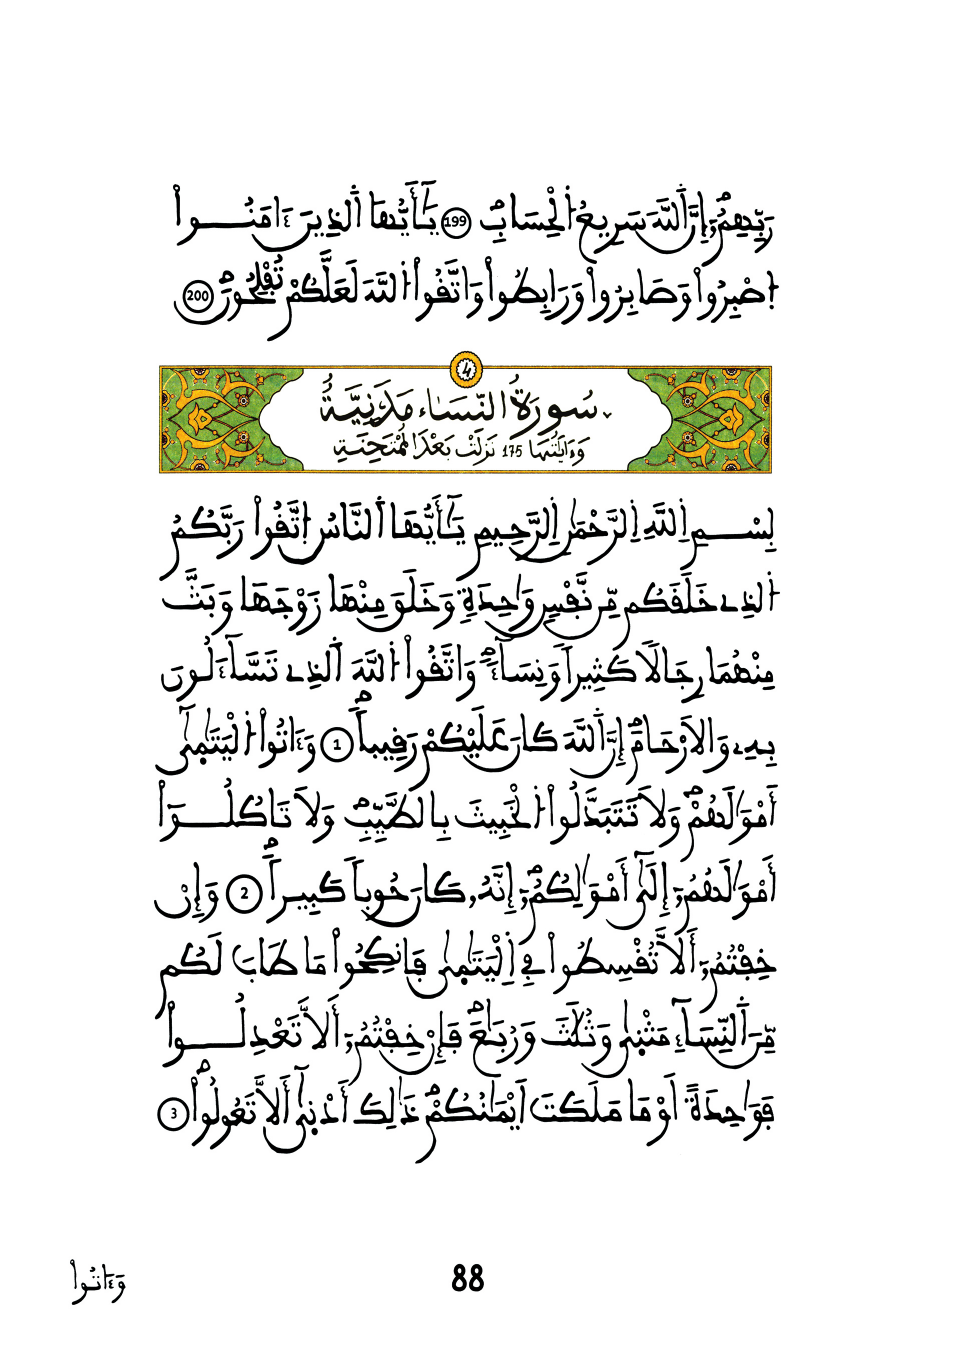 رَبِّهِمُۥٓۖ إِنَّ اَ۬للَّهَ سَرِيعُ اُ۬لْحِسَابِۖ 199 يَٰٓأَيُّهَا اَ۬لذِينَ ءَامَنُواْ
اُ۪صْبِرُواْ وَصَابِرُواْ وَرَابِطُواْ وَاتَّقُواْ اُ۬للَّهَ لَعَلَّكُمْ تُفْلِحُونَۖ 200
4
سُورَةُ اُ۬لنِّسَآءِ مَدَنِيَّةٌ
وَءَايَٰتُهَا 175 نَزَلَتْ بَعْدَ اَ۬لْمُمْتَحِنَةِ
بِسْمِ اِ۬للَّهِ اِ۬لرَّحْمَٰنِ اِ۬لرَّحِيمِ يَٰٓأَيُّهَا اَ۬لنَّاسُ اُ۪تَّقُواْ رَبَّكُمُ
اُ۬لذِے خَلَقَكُم مِّن نَّفْسٖ وَٰحِدَةٖ وَخَلَقَ مِنْهَا زَوْجَهَا وَبَثَّ
مِنْهُمَا رِجَالاٗ كَثِيراٗ وَنِسَآءٗۖ وَاتَّقُواْ اُ۬للَّهَ اَ۬لذِے تَسَّآءَلُونَ
بِهِۦ وَالَارْحَامَۖ إِنَّ اَ۬للَّهَ كَانَ عَلَيْكُمْ رَقِيباٗۖ 1 وَءَاتُواْ اُ۬لْيَتَٰم۪ىٰٓ
أَمْوَٰلَهُمْۖ وَلَا تَتَبَدَّلُواْ اُ۬لْخَبِيثَ بِالطَّيِّبِۖ وَلَا تَاكُلُوٓاْ
أَمْوَٰلَهُمُۥٓ إِلَىٰٓ أَمْوَٰلِكُمُۥٓۖ إِنَّهُۥ كَانَ حُوباٗ كَبِيراٗۖ 2 وَإِنْ
خِفْتُمُۥٓ أَلَّا تُقْسِطُواْ فِے اِ۬لْيَتَٰم۪ىٰ فَانكِحُواْ مَا طَابَ لَكُم
مِّنَ اَ۬لنِّسَآءِ مَثْن۪ىٰ وَثُلَٰثَ وَرُبَٰعَۖ فَإِنْ خِفْتُمُۥٓ أَلَّا تَعْدِلُواْ
فَوَٰحِدَةً اَوْ مَا مَلَكَتَ اَيْمَٰنُكُمْۖ ذَٰلِكَ أَدْن۪ىٰٓ أَلَّا تَعُولُواْۖ 3
88
وَءَاتُواْ